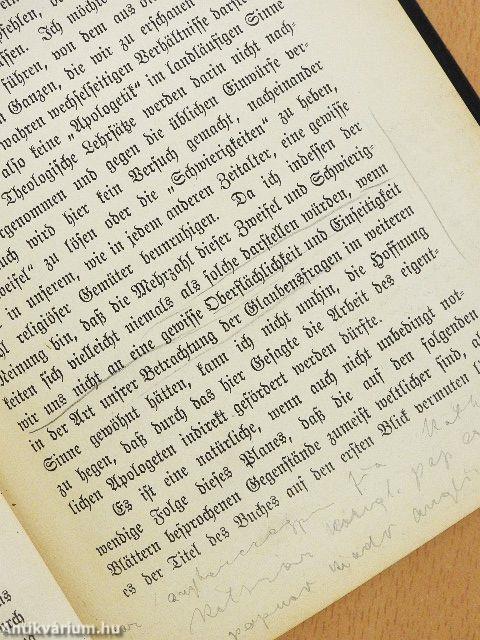 pfehlen, vo
assen. Ich möchte
führen, von dem aus
n Ganzen, die wir zu erschauen
wahren wechselseitigen Verhältnisse darste
also keine „Apologetik“ im landläufigen Sinne
Theologische Lehrsätze werden darin nicht nach-
rgenommen und gegen die üblichen Einwürfe ver-
uch wird hier kein Versuch gemacht, nacheinander
weifel“ zu lösen oder die „Schwierigkeiten“ zu heben,
in unserem, wie in jedem anderen Zeitalter, eine gewisse
hl religiöser Gemüter beunruhigen. Da ich indessen der
Meinung bin, daß die Mehrzahl dieser Zweifel und Schwierig-
keiten sich vielleicht niemals als solche darstellen würden, wenn
wir uns nicht an eine gewisse Oberflächlichkeit und Einseitigkeit
in der Art unsrer Betrachtung der Glaubensfragen im weiteren
Sinne gewöhnt hätten, kann ich nicht umhin, die Hoffnung
zu hegen, daß durch das hier Gesagte die Arbeit des eigent-
lichen Apologeten indirekt gefördert werden dürfte.
Es ist eine natürliche, wenn auch nicht unbedingt not-
wendige Folge dieses Planes, daß die auf den folgenden
Blättern besprochenen Gegenstände zumeist weltlicher sind, al
es der Titel des Buches auf den ersten Blick vermuten l
Antikvárium.hu